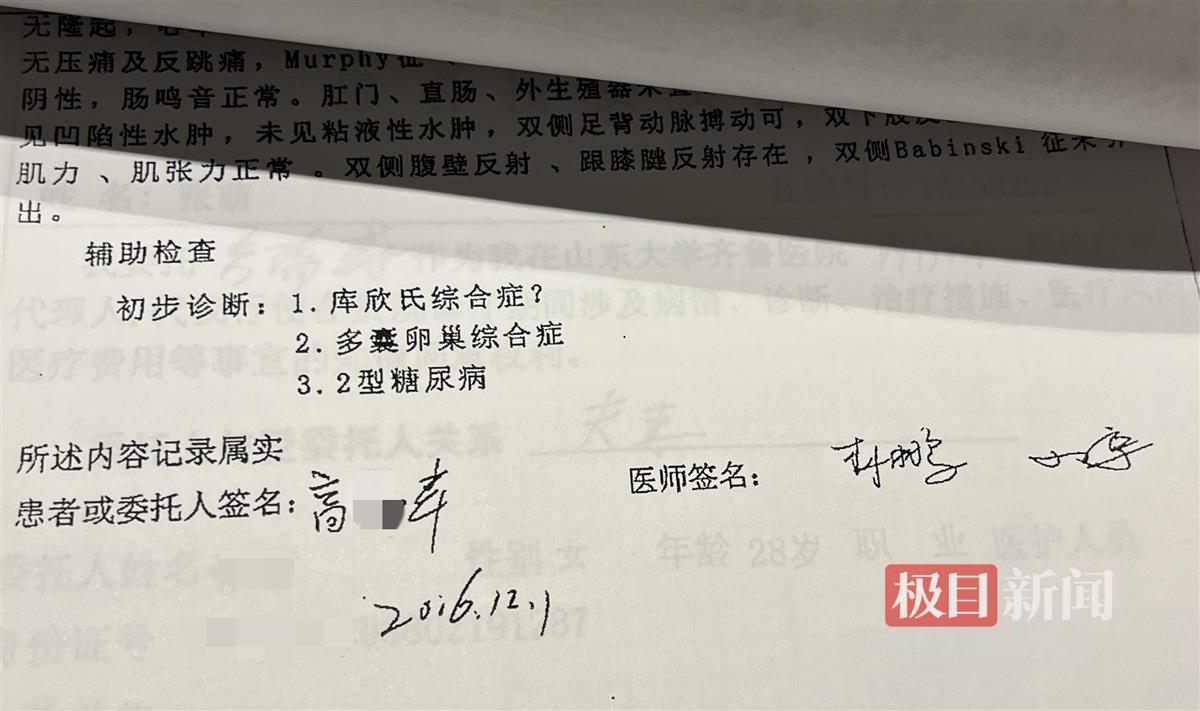 无隆起，
无压痛及反跳痛，Murphy征
阴性，肠鸣音正常。肛门、直肠、外生殖器未查
见凹陷性水肿，未见粘液性水肿，双侧足背动脉搏动可，双下肢
肌力、肌张力正常。双侧腹壁反射、跟膝腱反射存在，双侧Babinski征未引
出。
姓名：张萌 住院号：
作为我在山东大学齐鲁医院
辅助检查
代理人 期间涉及病情、诊断、治疗措施、医疗
初步诊断：1.库欣氏综合症？
2.多囊卵巢综合症
医疗费用等事宜的 权利。
3.2型糖尿病
委托人关系 夫妻
所述内容记录属实
患者或委托人签名：高 医师签名：
委托人姓名 性别 女 年龄 28岁 职业 医护人员
极目新闻
2016.12.1
身份证号